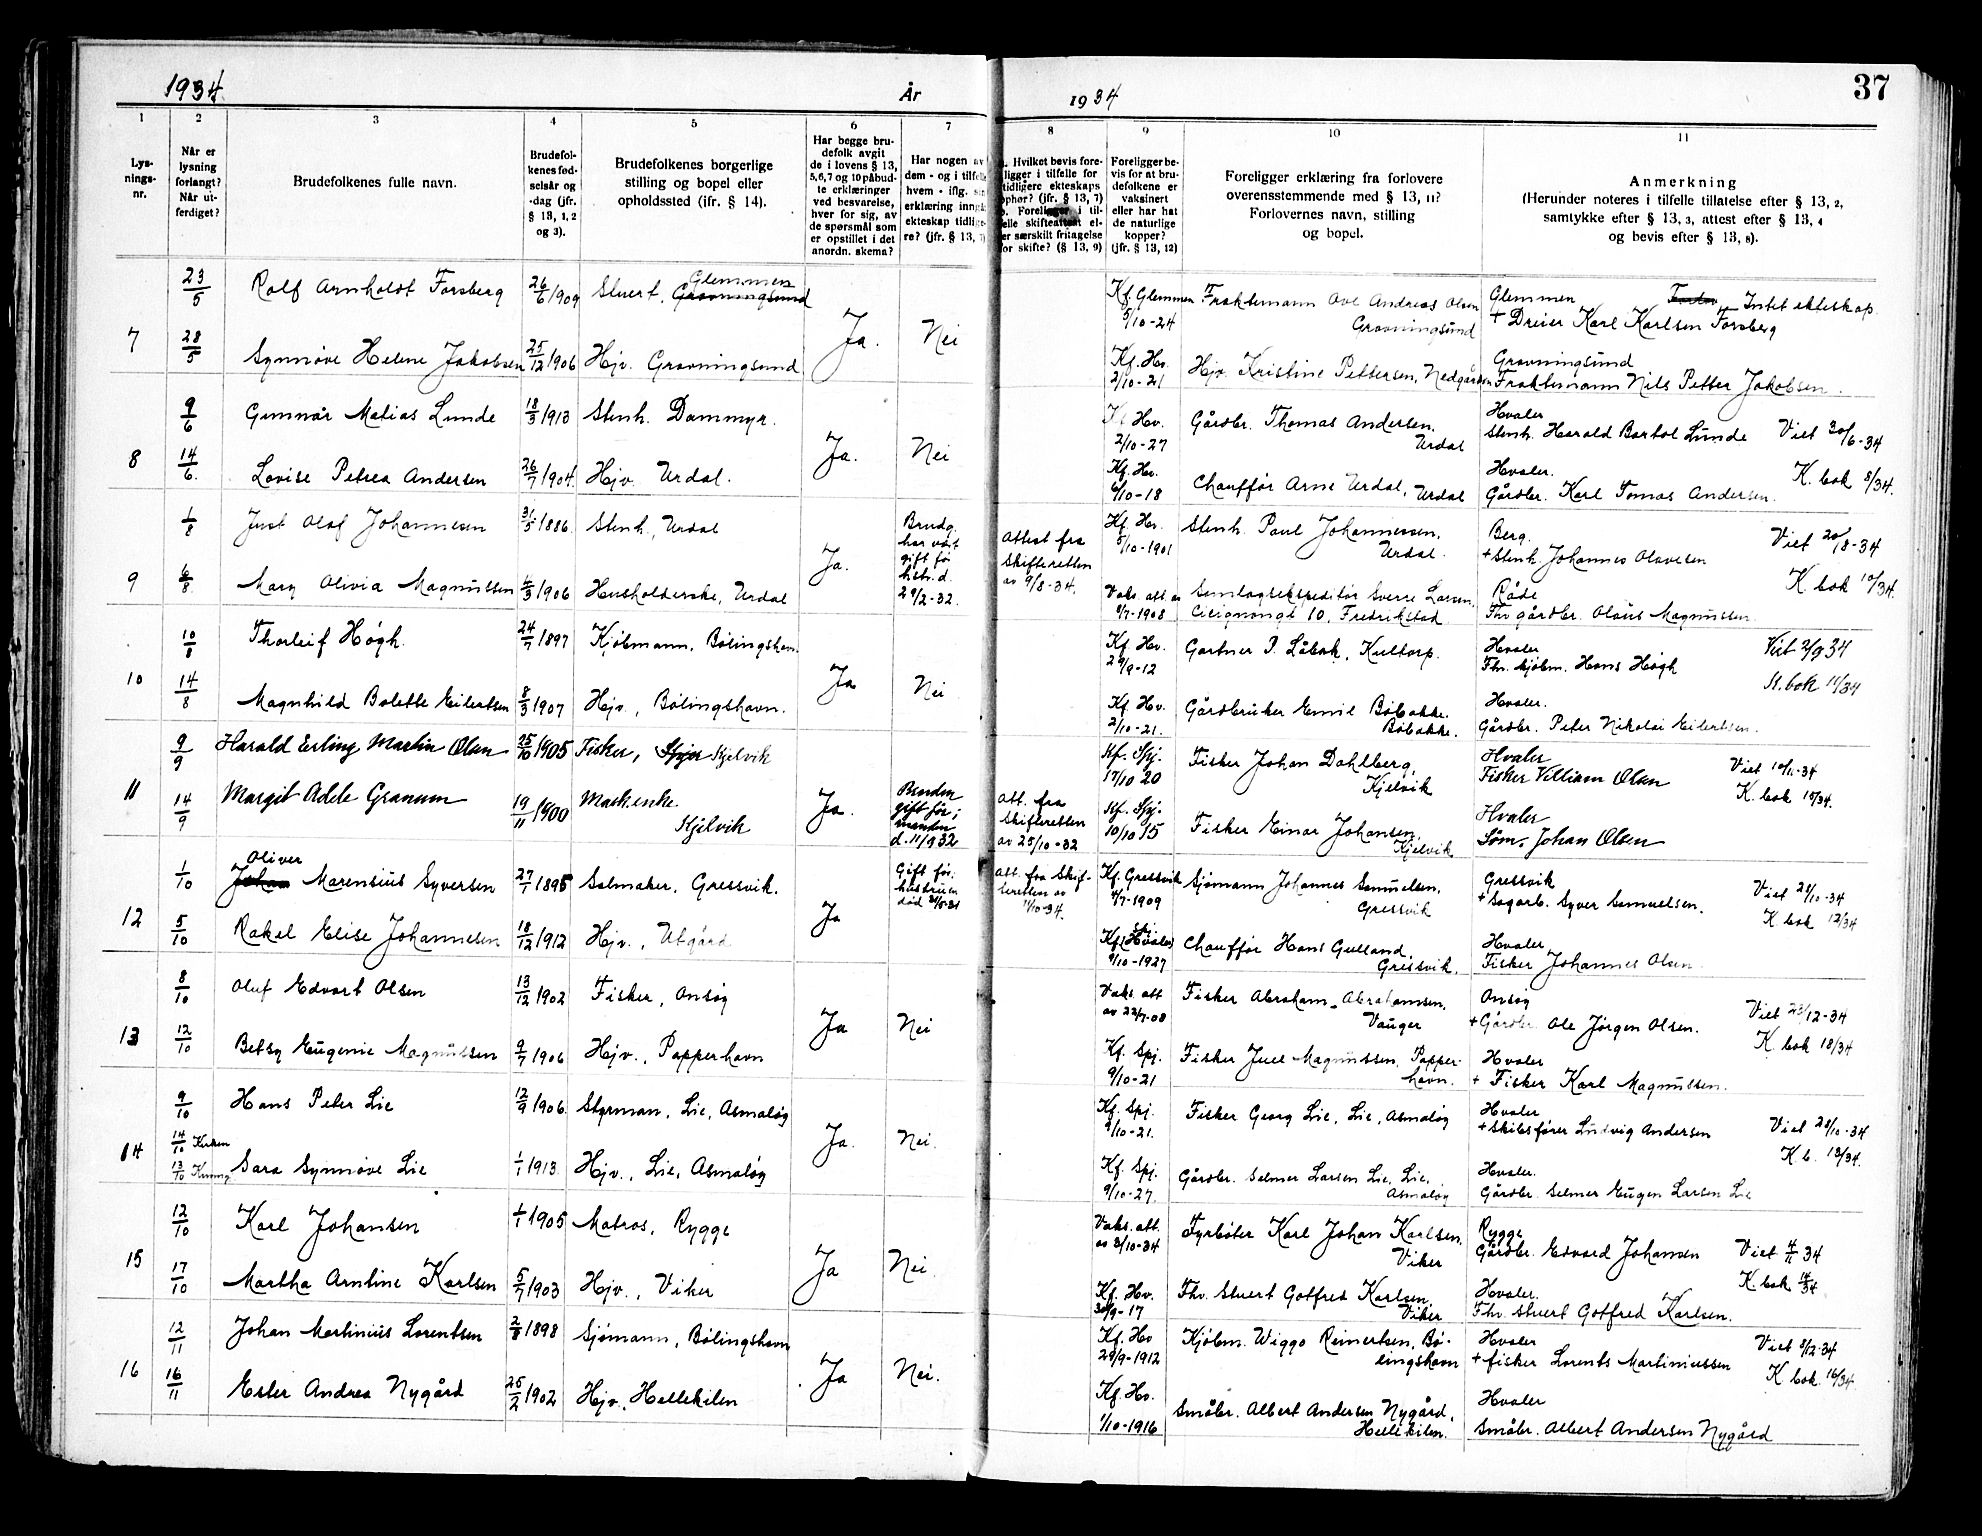 1934 År
1934
37
1 2 3 4 5 6 7 8 9 10 11
Lys-
nings-
nr.
Når er
lysning
forlangt?
Når ut-
ferdiget?
Brudefolkenes fulle navn.
Brudefol-
kenes fød-
selsår og
-dag (jfr.
§ 13, 1, 2
og 3).
Brudefolkenes borgerlige
stilling og bopel eller
opholdssted (ifr. § 14).
Har begge bru-
defolk avgit
de i lovens § 13,
5,6,7 og 10 påbud-
te erklæringer
ved besvarelse,
hver for sig, av
de spørsmål som
er opstillet i det
anordn. skema?
Har nogen av
dem - og i tilfelle
hvem - iflg.
erklæring inngå
ekteskap tidlige-
re? (jfr. § 13,
Hvilket bevis fore-
ligger i tilfelle for
tidligere ekteskaps
ophør? (jfr. § 13, 7)
b. Foreligger i til-
felle skifteattest el-
er særskilt fritagelse
for skifte? (§ 13, 9)
Foreligger be-
vis for at bru-
defolkene er
vaksinert
eller har hat
de naturlige
kopper?
(jfr. § 13, 12)
Foreligger erklæring fra forlovere
overensstemmende med § 13, 11?
Forlovernes navn, stilling
og bopel.
Anmerkning
(Herunder noteres i tilfelle tillatelse efter § 13, 2,
samtykke efter § 13, 3, attest efter § 13, 4
og bevis efter § 13, 8).
7
23/5 Rolf Arnholdt Forsberg 26/6 1909 Stuert, Gravningsund Glemmen
Ja. Nei
Kf. Glemmen 5/10-24
Fraktemann Ove Andreas Olsen
Gravningsund
Glemmen Intet ekteskap.
+ Dreier Karl Karlsen Forsberg
28/5 Synnøve Helene Jakobsen 25/12 1906 Hjv. Gravningsund
Kf. Hv. 2/10-21
Hjv. Kristine Pettersen, Nedgården
Gravningsund
Fraktemann Nils Petter Jakobsen.
8
9/6 Gunnar Matias Lunde 18/3 1913 Stenh. Dammyr.
Ja. Nei
Hv. 2/10-27
Gårdbr. Thomas Andersen.
Urdal
Hvaler
Stenh. Harald Bartol Lunde Viet 30/6-34
14/6. Lovise Petrea Andersen 26/7 1904. Hjv. Urdal.
Kf. Hv. 6/10-18
Chauffør Arne Urdal, Urdal
Hvaler.
Gårdbr. Karl Tomas Andersen. K. bok 8/34.
9
1/8 Just Olaf Johannesen 31/5 1886. Stenh., Urdal
Ja.
Brudg.
har vært
gift før
hstr. d.
29/2-32.
Attest fra
Skifteretten
av 9/8-34.
Kf. Hv. 5/10-1901
Stenh. Paul Johannessen,
Urdal.
Berg.
+ Stenh. Johannes Olavesen Viet 20/8-34
6/8. Mary Olivia Magnussen 4/3 1906 Husholderske, Urdal
Vaks. att. av 9/7-1908
Sverre Larsen,
Cicignongt 10, Fredrikstad
Råde
Fhv gårdbr. Olaus Magnussen K. bok 10/34.
10
10/8 Thorleif Høgh. 24/7 1897 Kjøbmann, Bølingshavn.
Ja Nei
Kf. Hv. 29/9-12
Gartner P. Låbak, Kultorp.
Hvaler
Fhv. kjøbm. Hans Høgh Viet 2/9 34
14/8 Magnhild Bolette Eilertsen 8/3 1907 Hjv., Bølingshavn.
Kf. Hv. 2/10-21.
Gårdbruker Emil Bøbakke.
Bøbakke.
Hvaler.
Gårdbr. Peter Nikolai Eilertsen. K. bok 11/34
11
9/9 Harald Erling Martin Olsen 25/10 1905 Fisker, Kjelvik
Ja.
Bruden
gift før;
mannen
d. 11/9 32
Att. fra
Skifteretten
av 25/10-32
Kf. Spj. 17/10 20
Fisker Johan Dahlberg,
Kjelvik
Hvaler
Fisker Villiam Olsen Viet 10/11-34
14/9 Margit Adele Granum 19/11 1900 Maskenke
Kjelvik
Kf. Spj. 10/10 15
Fisker Einar Johansen.
Kjelvik
Hvaler
Søm. Johan Olsen K. bok 15/34.
12
1/10 Johan Oliver Marensius Syversen 27/1 1895 Salmaker, Gressvik.
Ja
Gift før.
hustruen
død 31/5-31
Att. fra Skif-
teretten av
1/10-34.
Kf. Gressvik 4/7-1909
Sjømann Johannes Samuelsen,
Gressvik
Gressvik
+ Sagarb. Syver Samuelsen. Viet 21/10-34
5/10 Rakel Elise Johannesen 18/12 1912 Hjv., Utgård
Kf. (Hvaler) Spj. 9/10-1927
Chauffør Hans Gulland,
Gressvik.
Hvaler
Fisker Johannes Olsen. K bok 12/34
13
8/10 Oluf Edvart Olsen 13/12 1902 Fisker, Onsøy
Ja Nei
Vaks. att. av 22/7-08
Fisker Abraham Abrahamsen,
Vauger
Onsøy
+ Gårdbr. Ole Jørgen Olsen. Viet 23/12-34
12/10 Betsy Eugenie Magnussen 9/7 1906 Hjv., Papperhavn
Kf. Spj. 9/10-21
Fisker Juel Magnussen, Papper-
havn.
Hvaler
+ Fisker Karl Magnussen. K. bok 18/34
14
9/10 Hans Peter Lie 12/9 1906. Styrman, Lie, Asmaløy
Ja. Nei.
Kf. Spj. 9/10-21.
Fisker Georg Lie, Lie, Asmaløy
Hvaler
+ Skibsfører Ludvig Andersen Viet 28/10-34
14/10 Kirken
13/10 Sara Synnøve Lie 1/1 1913 Hjv., Lie, Asmaløy
Kf. Spj. 9/10-27.
Gårdbr. Selmer Larsen Lie, Lie,
Asmaløy
Hvaler.
Gårdbr. Selmer Eugen Larsen Lie K. b. 13/34.
15
12/10 Karl Johansen 1/1 1905 Matros, Rygge
Ja Nei.
Vaks. att. av 3/10-34
Fyrbøter Karl Johan Karlsen,
Viker
Rygge
Gårdbr. Edvard Johansen Viet 4/11 34
17/10 Martha Arntine Karlsen 5/7 1903 Hjv., Viker
Kf. Hv. 30/9-17
Fhv. Stuert Gotfred Karlsen,
Viker
Hvaler.
Fhv. stuert Gotfred Karlsen. K. bok 14/34
16
12/11 Johan Martinius Lorentsen 2/8 1898 Sjømann, Bølingshavn
Ja Nei.
Kf. Hv 29/9-1912
Kjøbm. Wiggo Reinertsen, Bø-
lingshavn
Hvaler
+ fisker Lorents Martiniussen Viet 8/12-34
16/11 Ester Andrea Nygård 25/2 1902 Hjv., Hellekilen
Kf. Hv. 1/10-1916
Småbr. Albert Andersen Nygård,
Hellekilen.
Hvaler
Småbr. Albert Andersen Nygård K bok. 16/34.